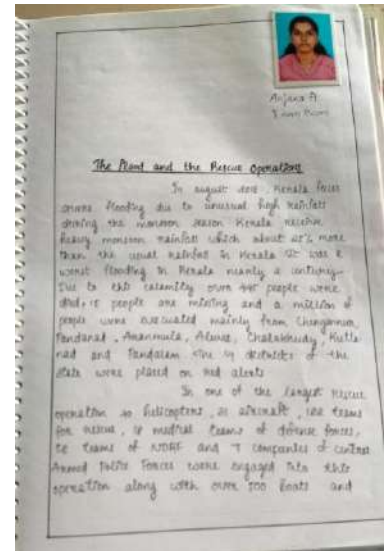 Anjana A
The Flood and the Rescue Operations
In august 2018, Kerala faces
severe flooding due to unusual high rainfall
during the monsoon season Kerala receive
heavy monsoon rainfall which about more
than the usual rainfall in Kerala It was a
worst flooding in Kerala nearly a century
Due to this calamity over people were
died, 15 people are missing and a million of
people were evacuated mainly from Chengannur,
Pandanad, Aranmula, Aluva, Chalakkudy, Kutta
nad and Pandalam. the 14 districts of the
state were placed on red alerts
In one of the largest rescue
operation helicopters, aircraft, teams
for rescue, medical teams of defense forces,
teams of NDRF and companies of central
Armed Police Forces were engaged into this
operation along with over 500 boats and